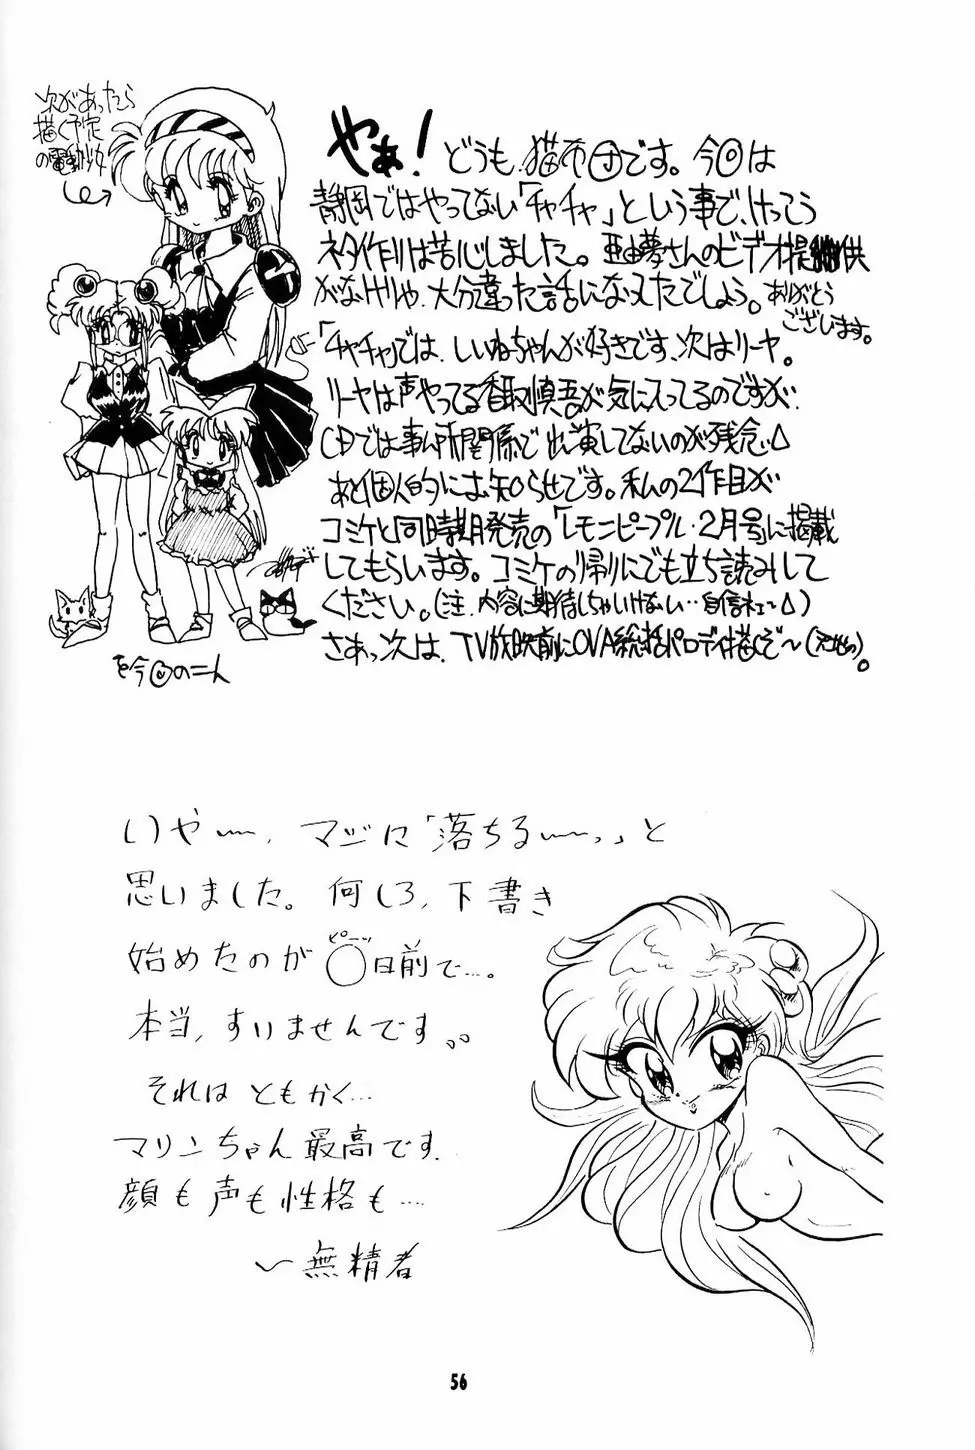 次があったら
描く予定
の電動少女
やぁ! どうも、猫布団です。今回は
静岡ではやってない「チャチャ」という事で、けっこう
ネタ作りは苦心しました。亜由夢さんのビデオ提供
がなけりゃ、大分違った話になってたでしょう。ありがとう
ございます。
「チャチャ」では、しいねちゃんが好きです、次はリーヤ。
リーヤは声やってる香取慎吾が気に入ってるのですが、
CDでは事ム所関係で出演してないのが残念、
あと個人的にお知らせです。私の2作目が
コミケと同時期発売の「レモンピープル・2月号」に掲載
してもらいます。コミケの帰りにでも立ち読みして
ください。(注、内容に期待しちゃいけない…自信ネェ〜)
さあっ次は、TV放映前にOVA総括パロディ描くぞ〜
を今回のニん
いやー、マジに「落ちるーっ」と
思いました。何しろ、下書き
始めたのが ピーッ
◯日前で…。
本当、すいませんです。。
それは ともかく…
マリンちゃん最高です.
顔も声も性格も…
〜無精者
56